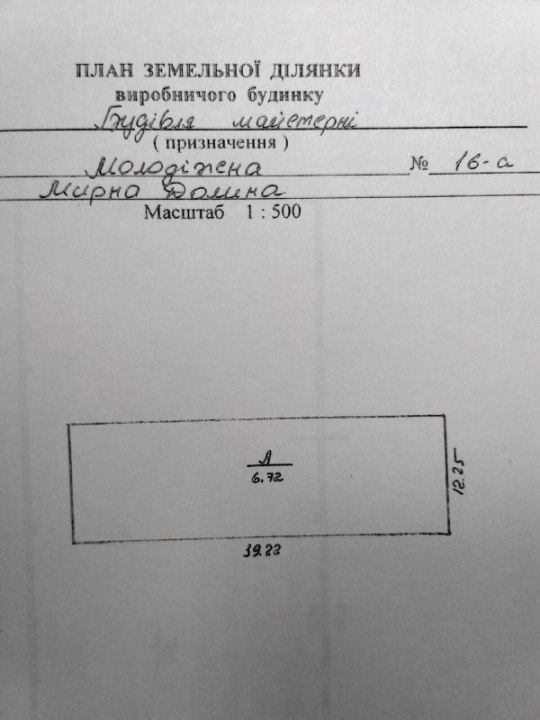 ПЛАН ЗЕМЕЛЬНОЇ ДІЛЯНКИ
виробничого будинку
Будівля майстерні
( призначення )
Молодіжна № 16-а
Мирна Долина
Масштаб 1 : 500
А
6.72
12.25
39.22